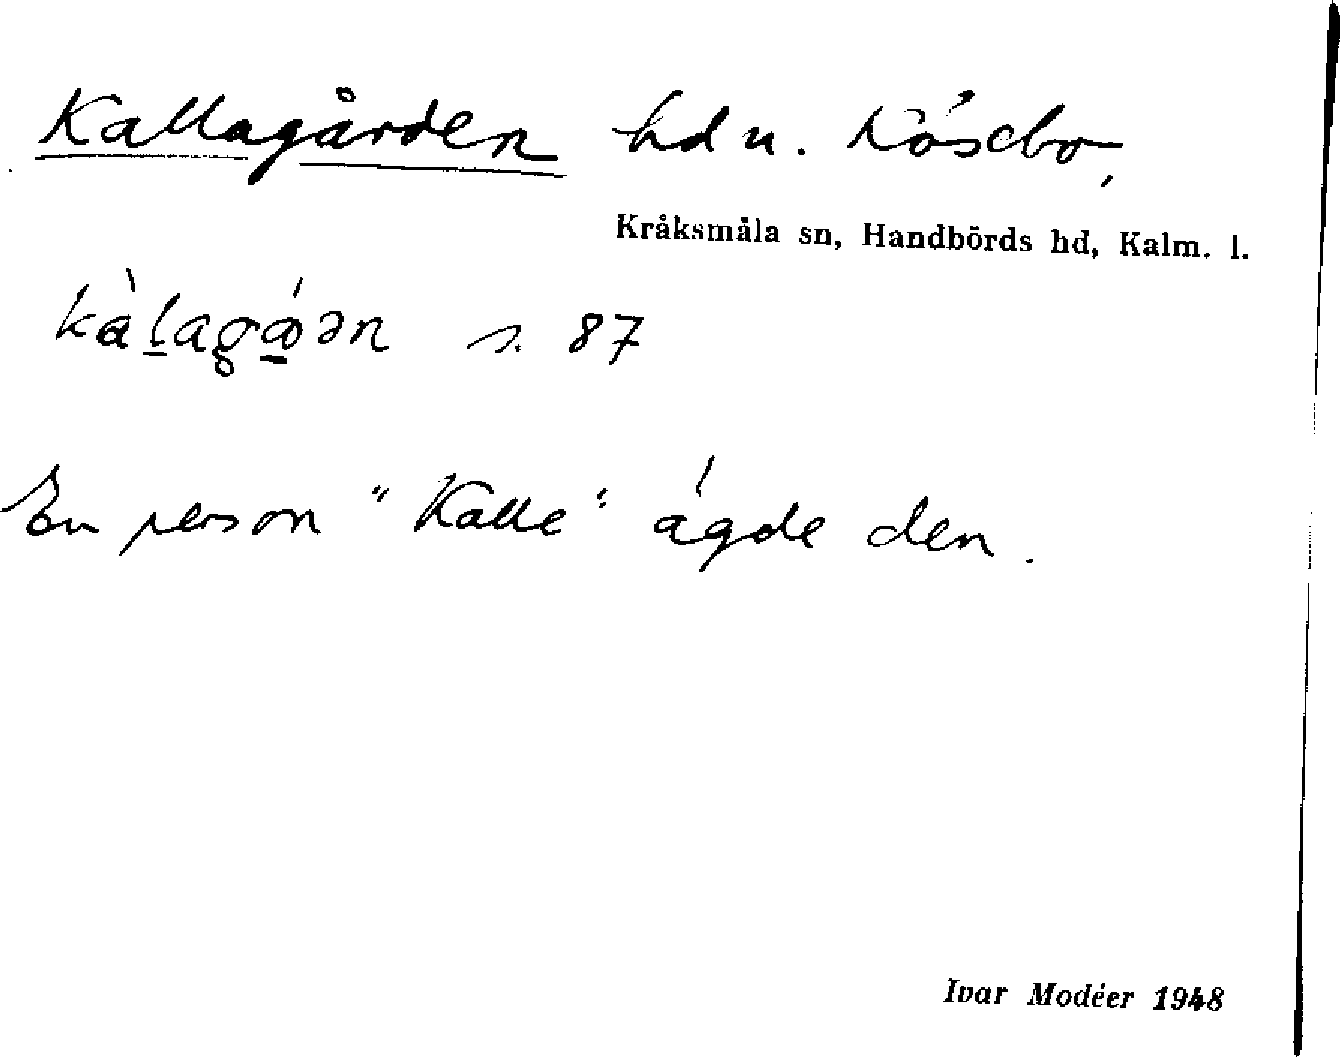 Kallagården hdn. Rösebo,
Kråksmåla sn, Handbörds hd, Kalm. l.
s. 87
En person "Kalle" ägde den.
Ivar Modéer 1948